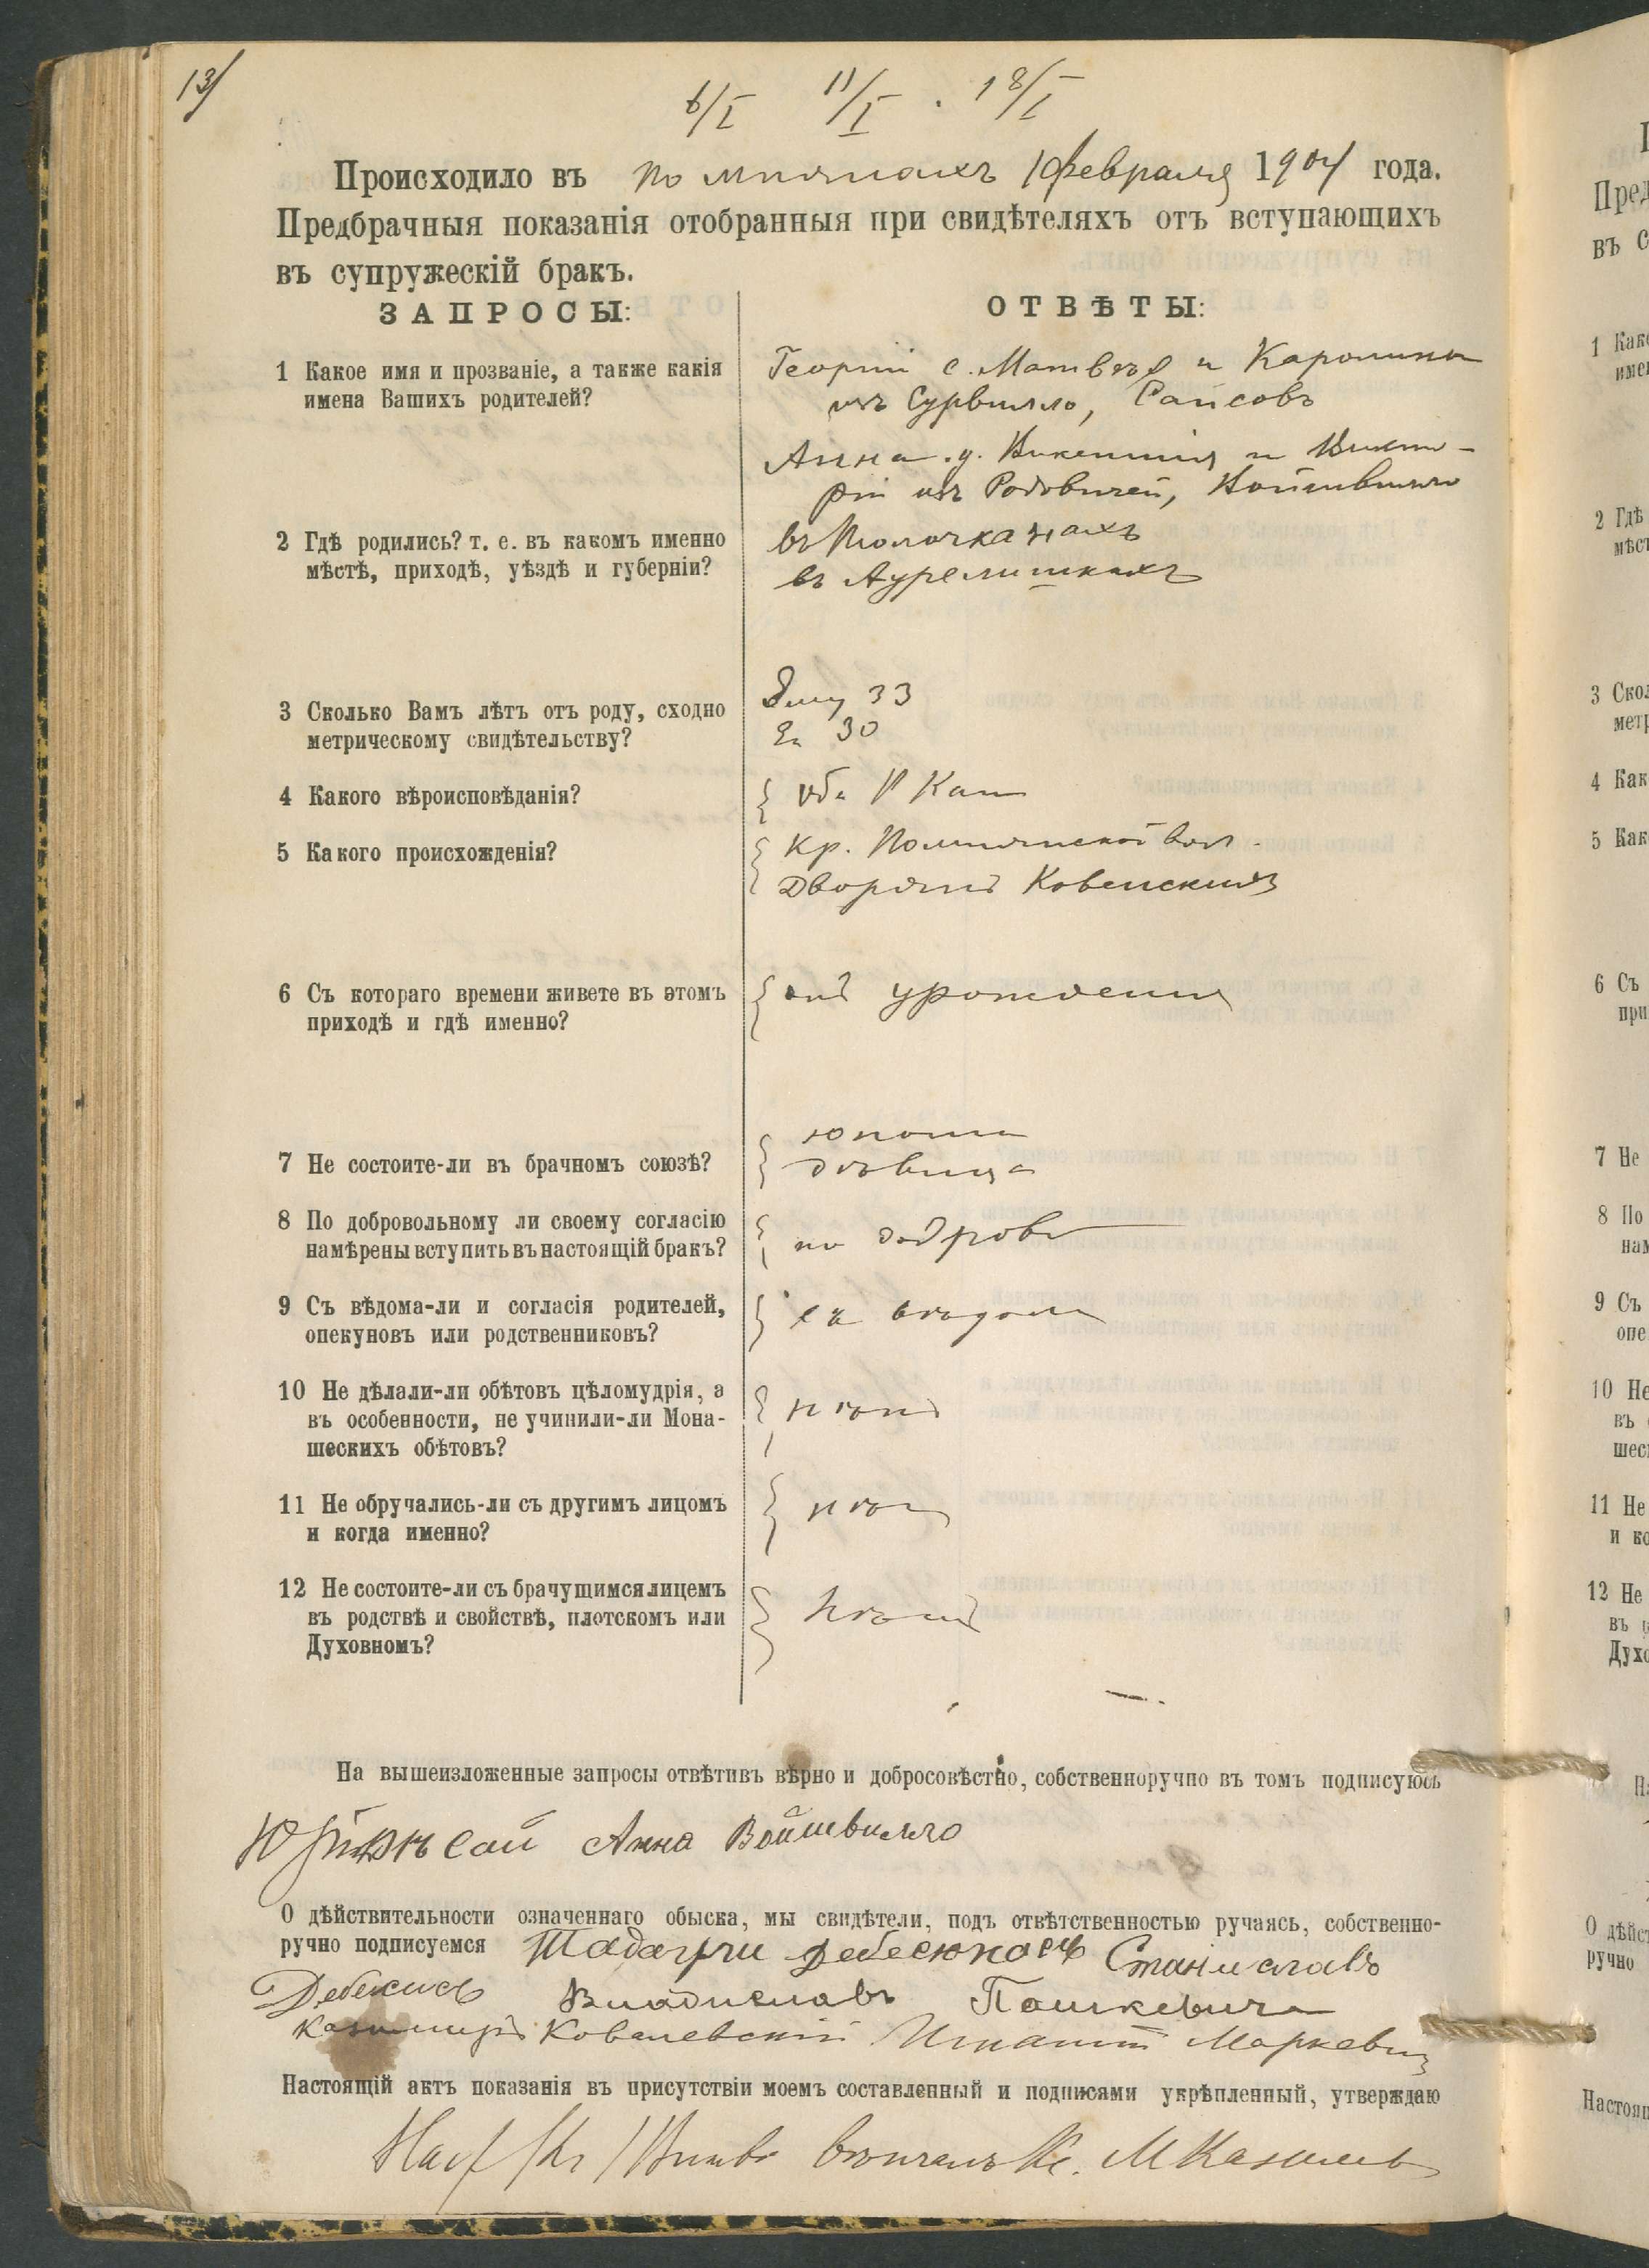 13/
6/I 11/I . 18/I
Происходило въ Помпянахъ 1 февраля 1904 года.
Предбрачныя показанія отобранныя при свидѣтеляхъ отъ вступающихъ
въ супружескій бракъ.
ЗАПРОСЫ:
ОТВѢТЫ:
1 Какое имя и прозваніе, а также какія
имена Вашихъ родителей?
Георгій с. Матвѣя и Каролины
изъ Сурвилло, Сайсовъ
Анна д. Викентія и Викто-
рій изъ Родовичей, Войшвилло
2 Гдѣ родились? т. е. въ какомъ именно
мѣстѣ, приходѣ, уѣздѣ и губерніи?
въ
въ Аурелишкахъ
3 Сколько Вамъ лѣтъ отъ роду, сходно
метрическому свидѣтельству?
Ему 33
Ей 30
4 Какого вѣроисповѣданія?
Оба Р Кат
5 Какого происхожденія?
Кр. Помпянской вол.
Дворянъ Ковенскихъ
6 Съ котораго времени живете въ этомъ
приходѣ и гдѣ именно?
отъ урожденія
7 Не состоите-ли въ брачномъ союзѣ?
юноша
дѣвица
8 По добровольному ли своему согласію
намѣрены вступить въ настоящій бракъ?
по добров
9 Съ вѣдома-ли и согласія родителей,
опекуновъ или родственниковъ?
съ вѣдома
10 Не дѣлали-ли обѣтовъ цѣломудрія, а
въ особенности, не учинили-ли Мона-
шескихъ обѣтовъ?
нѣтъ
11 Не обручались-ли съ другимъ лицомъ
и когда именно?
нѣт
12 Не состоите-ли съ брачущимся лицемъ
въ родствѣ и свойствѣ, плотскомъ или
Духовномъ?
Нѣтъ
На вышеизложенные запросы отвѣтивъ вѣрно и добросовѣстно, собственноручно въ томъ подписуюсь
Анна Войшвилло
О дѣйствительности означеннаго обыска, мы свидѣтели, подъ отвѣтственностью ручаясь, собственно-
ручно подписуемся Станиславъ
Владиславъ Пашкевичъ
Казимиръ Ковалевскій Игнатій Маркевич
Настоящій актъ показанія въ присутствіи моемъ составленный и подписями укрѣпленный, утверждаю
вѣнчалъ Кс. М